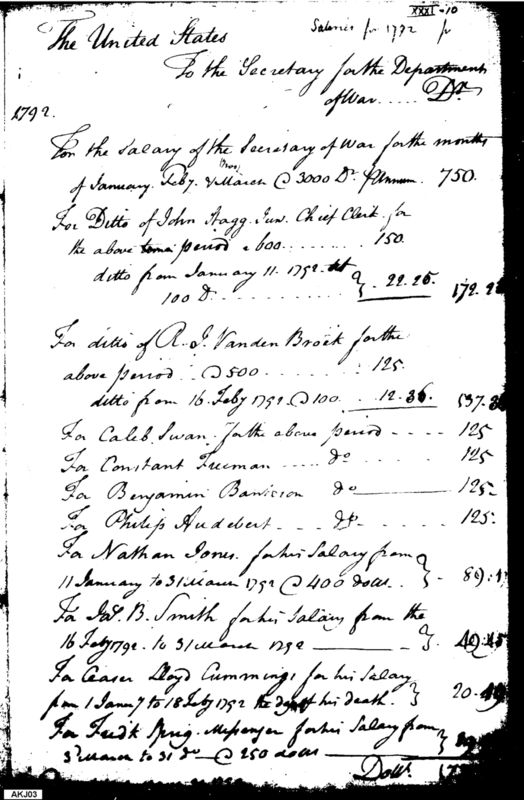 XXXI-10
Salaries for 1792
The United States
To the Secretary for the Department
of War..... Dr.
1792.
For the Salary of the Secretary of War for the months
of January. Feby. & March @ 3000 Drs. Annum. 750.
For Ditto of John Stagg Jun. Chief Clerk. for
the above period 600......... 150.
ditto from January 11. 1792.
100 D............ } 22.25. 172.2
For ditto of R. J. Vanden Broek for the
above period.. @ 500....... 125.
ditto from 16 Feby 1792. @ 100. 12.36. 137.3
For Caleb. Swan, for the above period - - - - 125
For Constant Freeman ..... do ........ 125
For Benjamin Bankson do ——— 125-
For Philip Audebert - - - do - - - - - 125.
For Nathan Jones. for his Salary from
11 January to 31 March 1792 @ 400 dolls. } - 89.
For Jas. B. Smith for his Salary from the
16 Feby 1792. to 31 March 1792 ——— - } -
For Ceaser Lloyd Cummings for his Salary
from 1 Jany to 18 Feby 1792 the day of his death. } 20.
For Fredk Messenger for his Salary from
3d March to 31 do — @ 250 dolls }
Dolls.
AKJ03